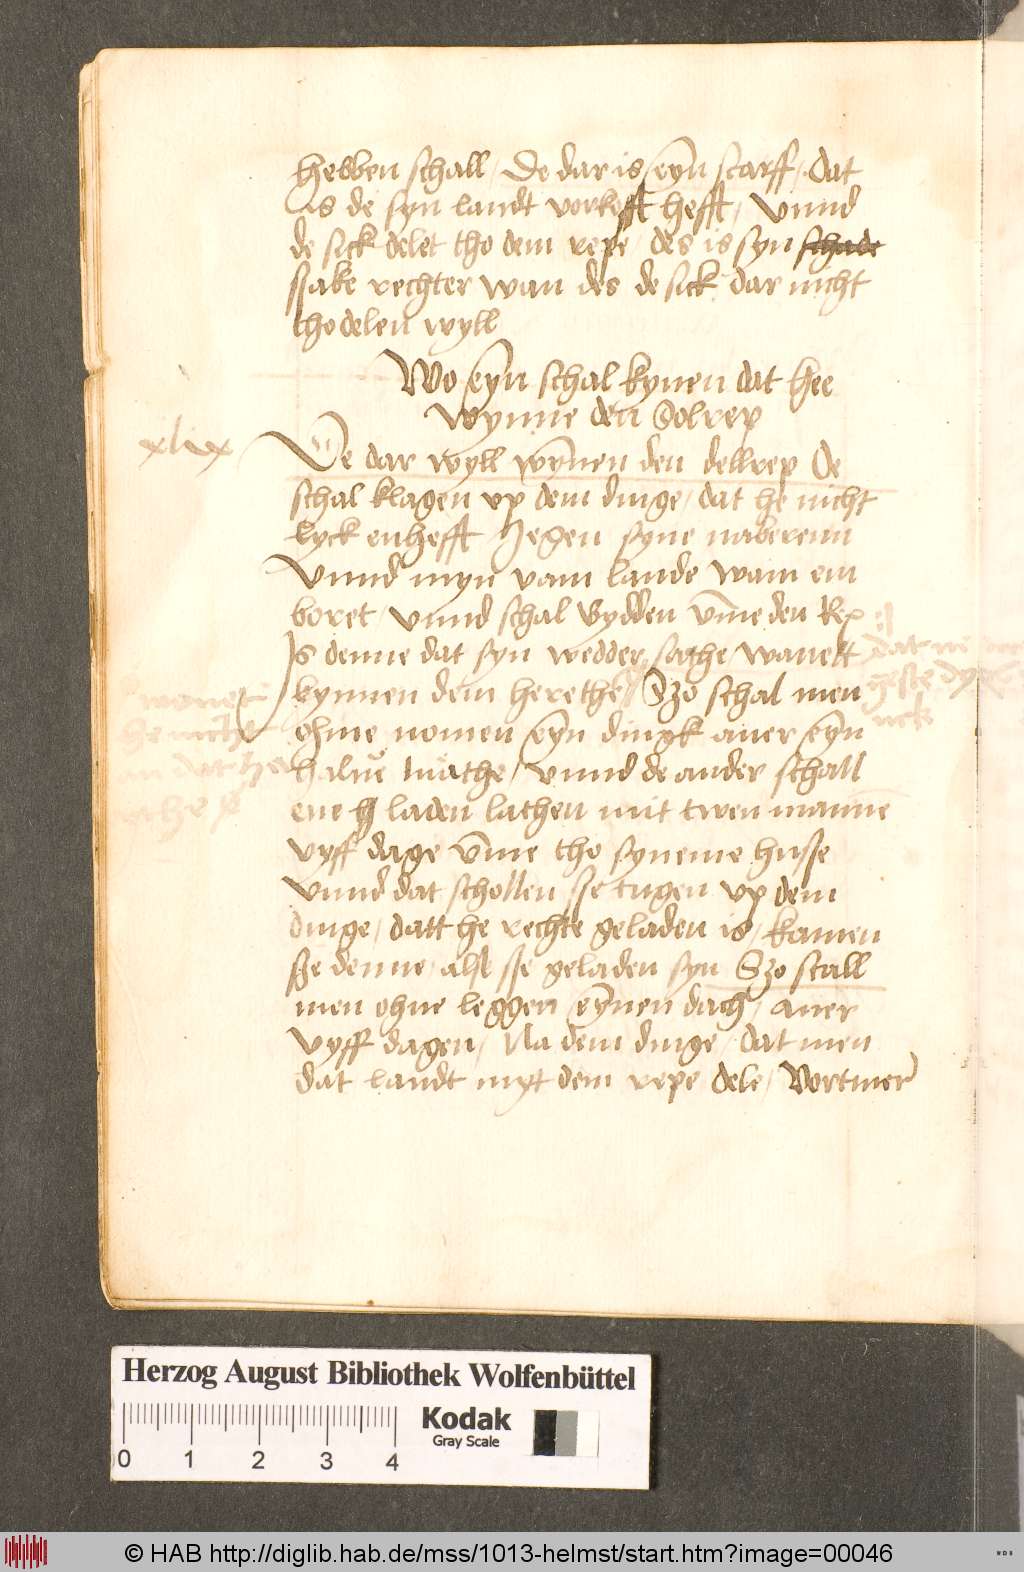 hebben schall / De dar is eyn scarff / dat
is de syn landt vorkofft hefft / vnnd
de sick delet tho dem repe / des is syn schade
ssake rechter wan des de sick dar nicht
tho delen wyll
Wo eyn schal kynen dat hee
wynne den Solrep
xlix
De dar wyll wynen den dellrep De
schal klagen vp dem dinge / dat he nicht
lyck enhefft Jegen syne naberenn
vnnd myn vam lande wam em
boret / vnnd schal bydden vme den Rep
Is denne dat syn wedder sathe wanett
kynnen dem herethe / Szo schal men
ohme nomen eyn dingk auer eyn
halue mathe / vnnd de ander schall
ene laden lathen mit twen manne
vyff dage vme tho syneme husse
vnnd dat schollen sse tugen vp dem
dinge / datt he rechte geladen is / kamen
sse denne alse sse geladen syn Szo scall
men ohne leggen eynen dach / auer
vyff dagen / Na dem dinge / dat men
dat landt myt dem repe dele / Vortmer
Herzog August Bibliothek Wolfenbüttel
Kodak
Gray Scale
0 1 2 3 4
© HAB http://diglib.hab.de/mss/1013-helmst/start.htm?image=00046